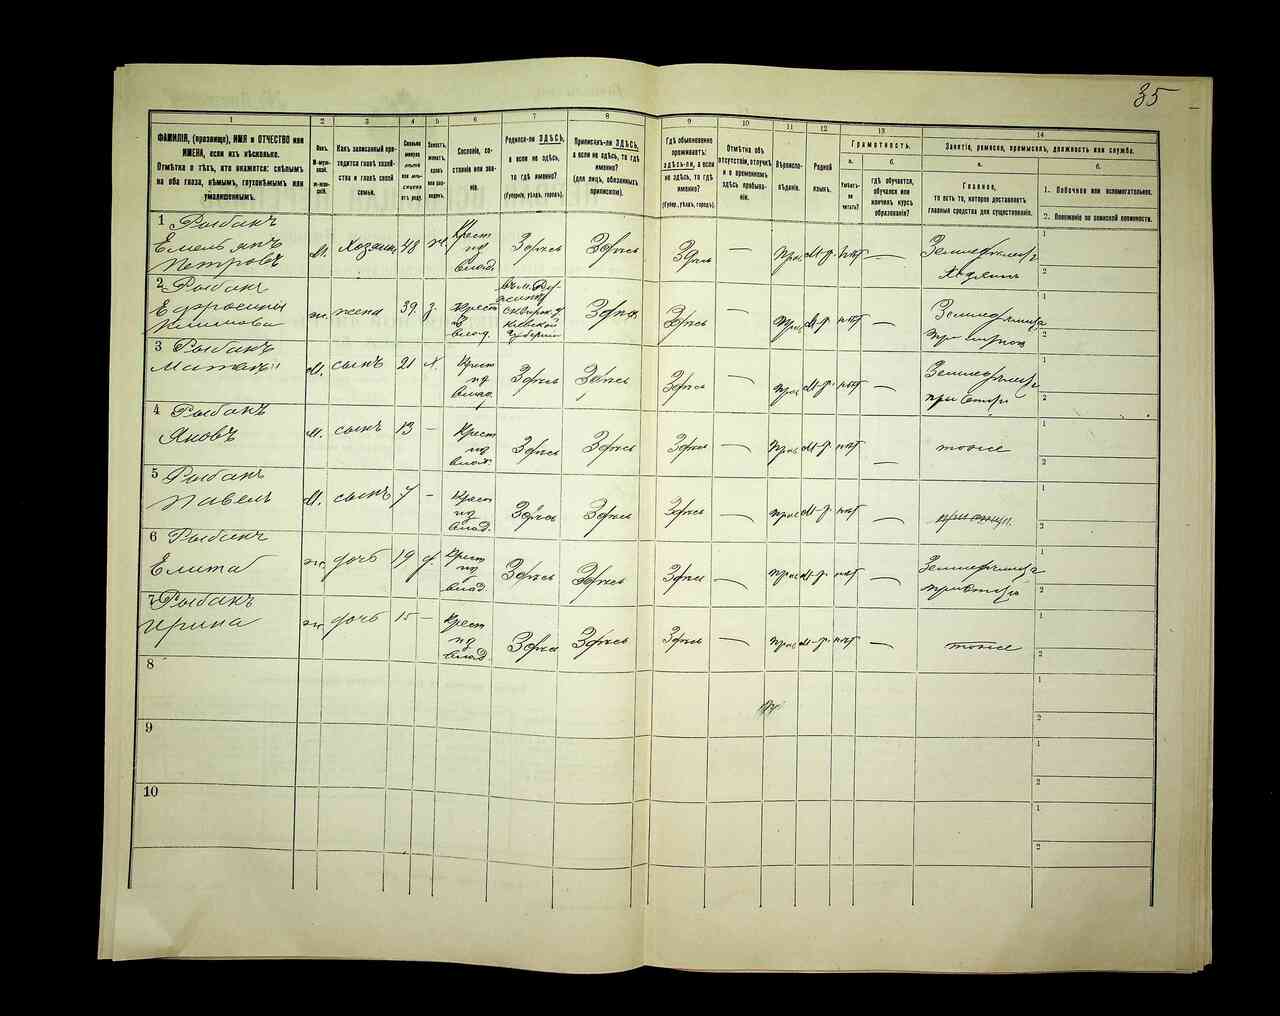 35
1
2
3
4
5
6
7
8
9
10
11
12
13
14
ФАМИЛІЯ, (прозвище), ИМЯ и ОТЧЕСТВО или
ИМЕНА, если ихъ нѣсколько.
Отмѣтка о тѣхъ, кто окажется: слѣпымъ
на оба глаза, нѣмымъ, глухонѣмымъ или
умалишеннымъ.
Полъ.
Какъ записанный приходится главѣ хозяйства и главѣ своей семьи.
Сословіе, состояніе или званіе.
Родился-ли ЗДѢСЬ,
а если не здѣсь,
то гдѣ именно?
(Губернія, уѣздъ, городъ).
Приписанъ-ли ЗДѢСЬ,
а если не здѣсь, то гдѣ
именно?
(для лицъ, обязанныхъ
припиской).
Гдѣ обыкновенно
проживаетъ:
здѣсь-ли, а если
не здѣсь, то гдѣ
именно?
(Губер., уѣздъ, городъ).
Отмѣтка объ
отсутствіи, отлучкѣ
и о временномъ
здѣсь пребываніи.
Вѣроисповѣданіе.
Родной
языкъ.
Грамотность.
а.
Умѣетъ-ли
читать?
б.
гдѣ обучается,
обучался или
кончилъ курсъ
образованія?
Занятіе, ремесло, промыселъ, должность или служба.
а.
Главное,
то есть то, которое доставляетъ
главныя средства для существованія.
б.
1. Побочное или вспомогательное.
2. Положеніе по воинской повинности.
1 Рыбакъ
Емельянъ
Петровъ
м. Хозяинъ 48 ж. Крест из влад. Здѣсь Здѣсь Здѣсь — Прав М-р. нѣт — Земледѣлецъ
1
2
2 Рыбакъ
Ефросинія
Климова
ж. жена 39. з. Крест из влад. Кіевской губерніи Здѣсь Здѣсь — Прав М-р нѣт — Земледѣлица
1
2
3 Рыбакъ
м. сынъ 21 х. Крест из влад. Здѣсь Здѣсь Здѣсь — Прав М-р нѣт — Земледѣлецъ
при отцѣ
1
2
4 Рыбакъ
Яковъ
м. сынъ 13 — Крест из влад. Здѣсь Здѣсь Здѣсь — Прав М-р. нѣт — тоже
1
2
5 Рыбакъ
Павелъ
м. сынъ 7 — Крест из влад. Здѣсь Здѣсь Здѣсь — Прав М-р. нѣт —
1
2
6 Рыбакъ
ж. дочь 19 д. Крест из влад. Здѣсь Здѣсь Здѣсь — Прав М-р. нѣт — Земледѣлица
при отцѣ
1
2
7 Рыбакъ
Ирина
ж. дочь 15 — Крест из влад. Здѣсь Здѣсь Здѣсь — Прав М-р. нѣт — тоже
1
2
8
1
2
9
1
2
10
1
2